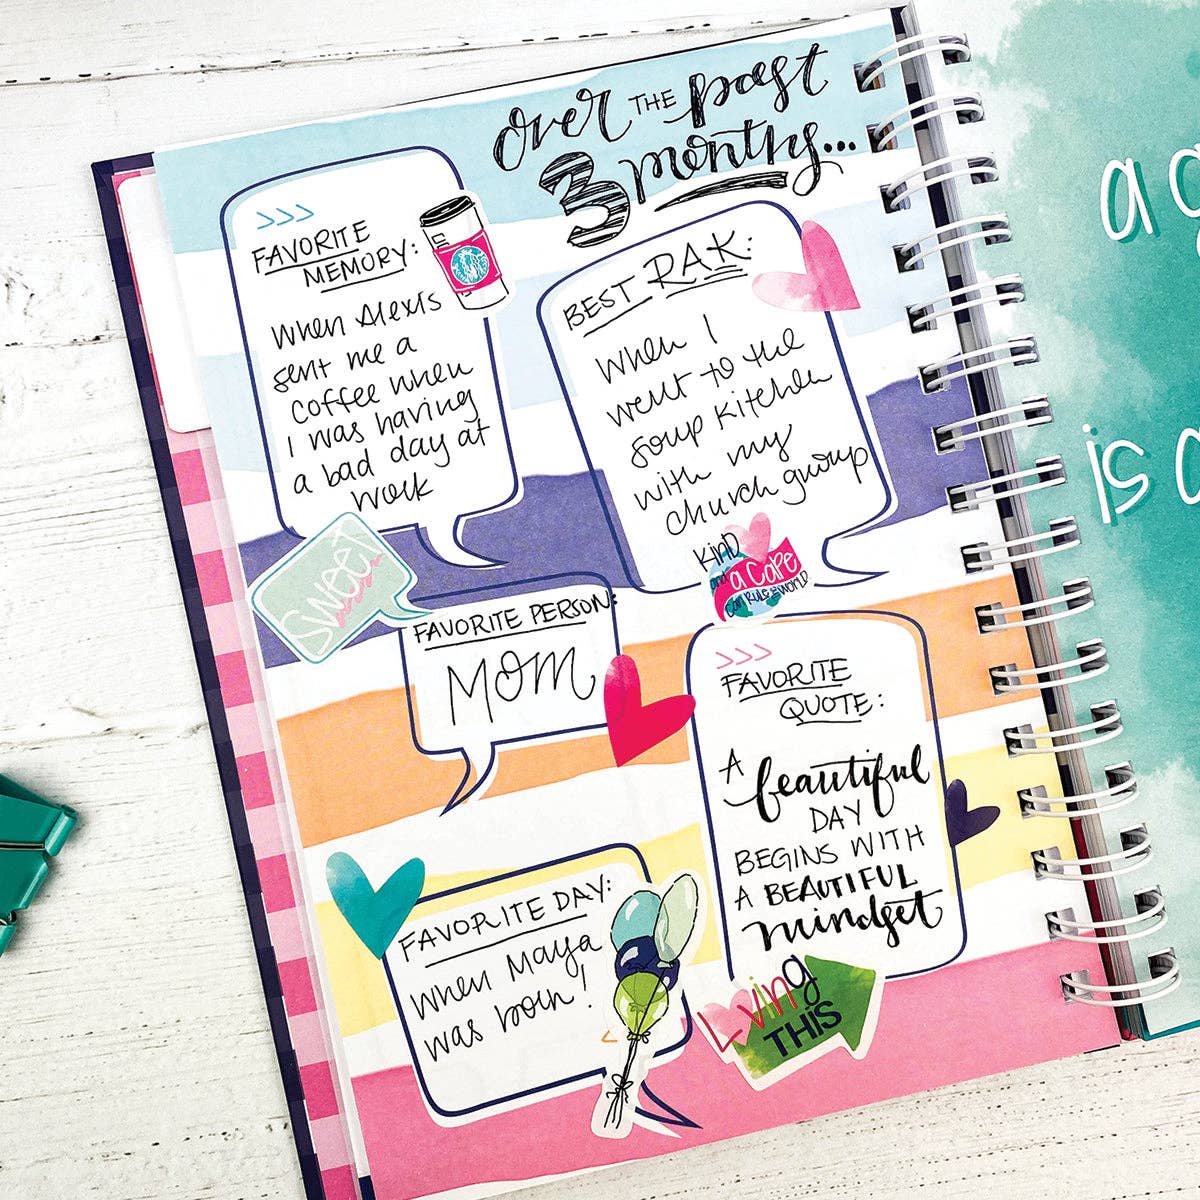 over THE past
3 months...
>>>
FAVORITE
MEMORY:
When Alexis
sent me a
coffee when
I was having
a bad day at
work
BEST RAK:
When I
went to the
soup kitchen
with my
church group
Sweet
KIND
and a CAPE
can RULE the WORLD
FAVORITE PERSON:
MOM
>>>
FAVORITE
QUOTE:
A beautiful
DAY
BEGINS WITH
A BEAUTIFUL
mindset
FAVORITE DAY:
When Maya
was born!
Loving
THIS
a g
is a